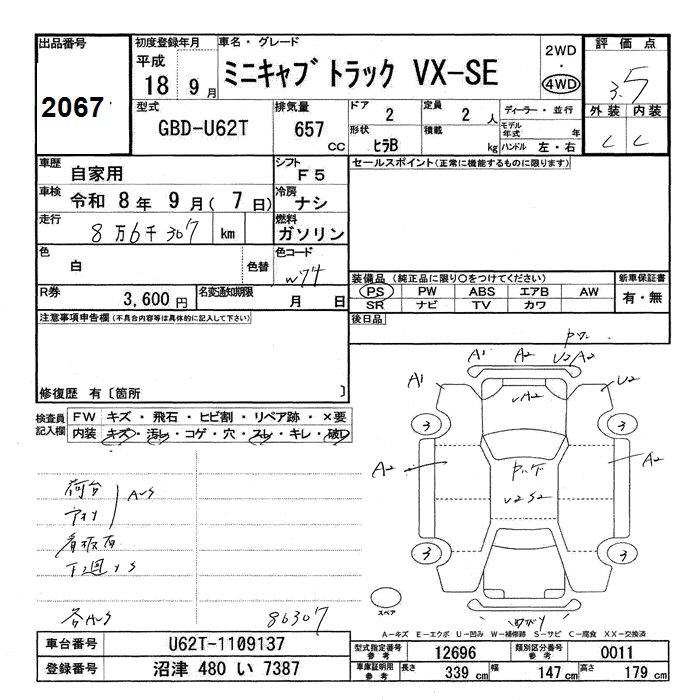 出品番号 初度登録年月 車名・グレード 2WD 評価点
2067 平成 18 9月 ミニキャブトラック VX-SE ・ 4WD 3.5
型式 排気量 ドア 2 定員 2人 ディーラー・並行 外装 内装
GBD-U62T 657 CC 形状 ヒラB 積載 kg モデル年式 年 C C
ハンドル 左・右
車歴 自家用 シフト F5 セールスポイント(正常に機能するものに限ります)
車検 令和 8年 9月(7日) 冷房 ナシ
走行 8万6千307 km 燃料 ガソリン
色 白 色替 色コード W74
装備品 (純正品に限り○をつけてください) 新車保証書
PS PW ABS エアB AW 有・無
SR ナビ TV カワ
R券 3,600円 名変通知期限 月 日
後日品
注意事項申告欄(不具合内容等は具体的に記入して下さい)
修復歴 有〔箇所 〕
検査員記入欄 FW キズ・飛石・ヒビ割・リペア跡・×要
内装 キズ・汚レ・コゲ・穴・スレ・キレ・破レ
A1 A2 U2A2
A1 U2
UA2
3 3
A2 A2
U2S2
3 3
荷台 AUS
アオリ
看板有
下廻りS
各AUS 86307
スペア
A-キズ E-エクボ U-凹み W-補修跡 S-サビ C-腐食 XX-交換済
車台番号 U62T-1109137 型式指定番号 参考 12696 類別区分番号 参考 0011
登録番号 沼津 480 い 7387 車庫証明用 参考 長さ 339cm 幅 147cm 高さ 179cm